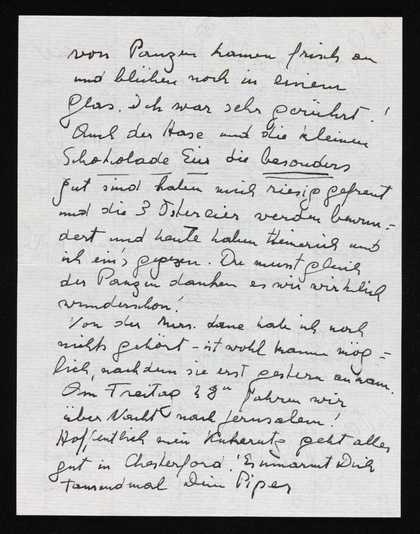 von Panzen kamen frisch an
und blühen noch in einem
Glas. Ich war sehr gerührt!
Auch der Hase und die kleinen
Schokolade Eier die besonders
gut sind haben mich riesig gefreut
und die 3 Ostereier werden bewun=
dert und heute haben Heinerich und
ich ein's gegessen. Du musst gleich
der Panzen danken es war wirklich
wunderschön!
Von der Mrs. Lane hab ich noch
nichts gehört - ist wohl kaum mög=
lich, nachdem sie erst gestern ankam.
Am Freitag fahren wir
über Nacht nach Jerusalem!
Hoffentlich mein geht alles
gut in Chesterford! Es umarmt Dich
tausendmal Dein Piper